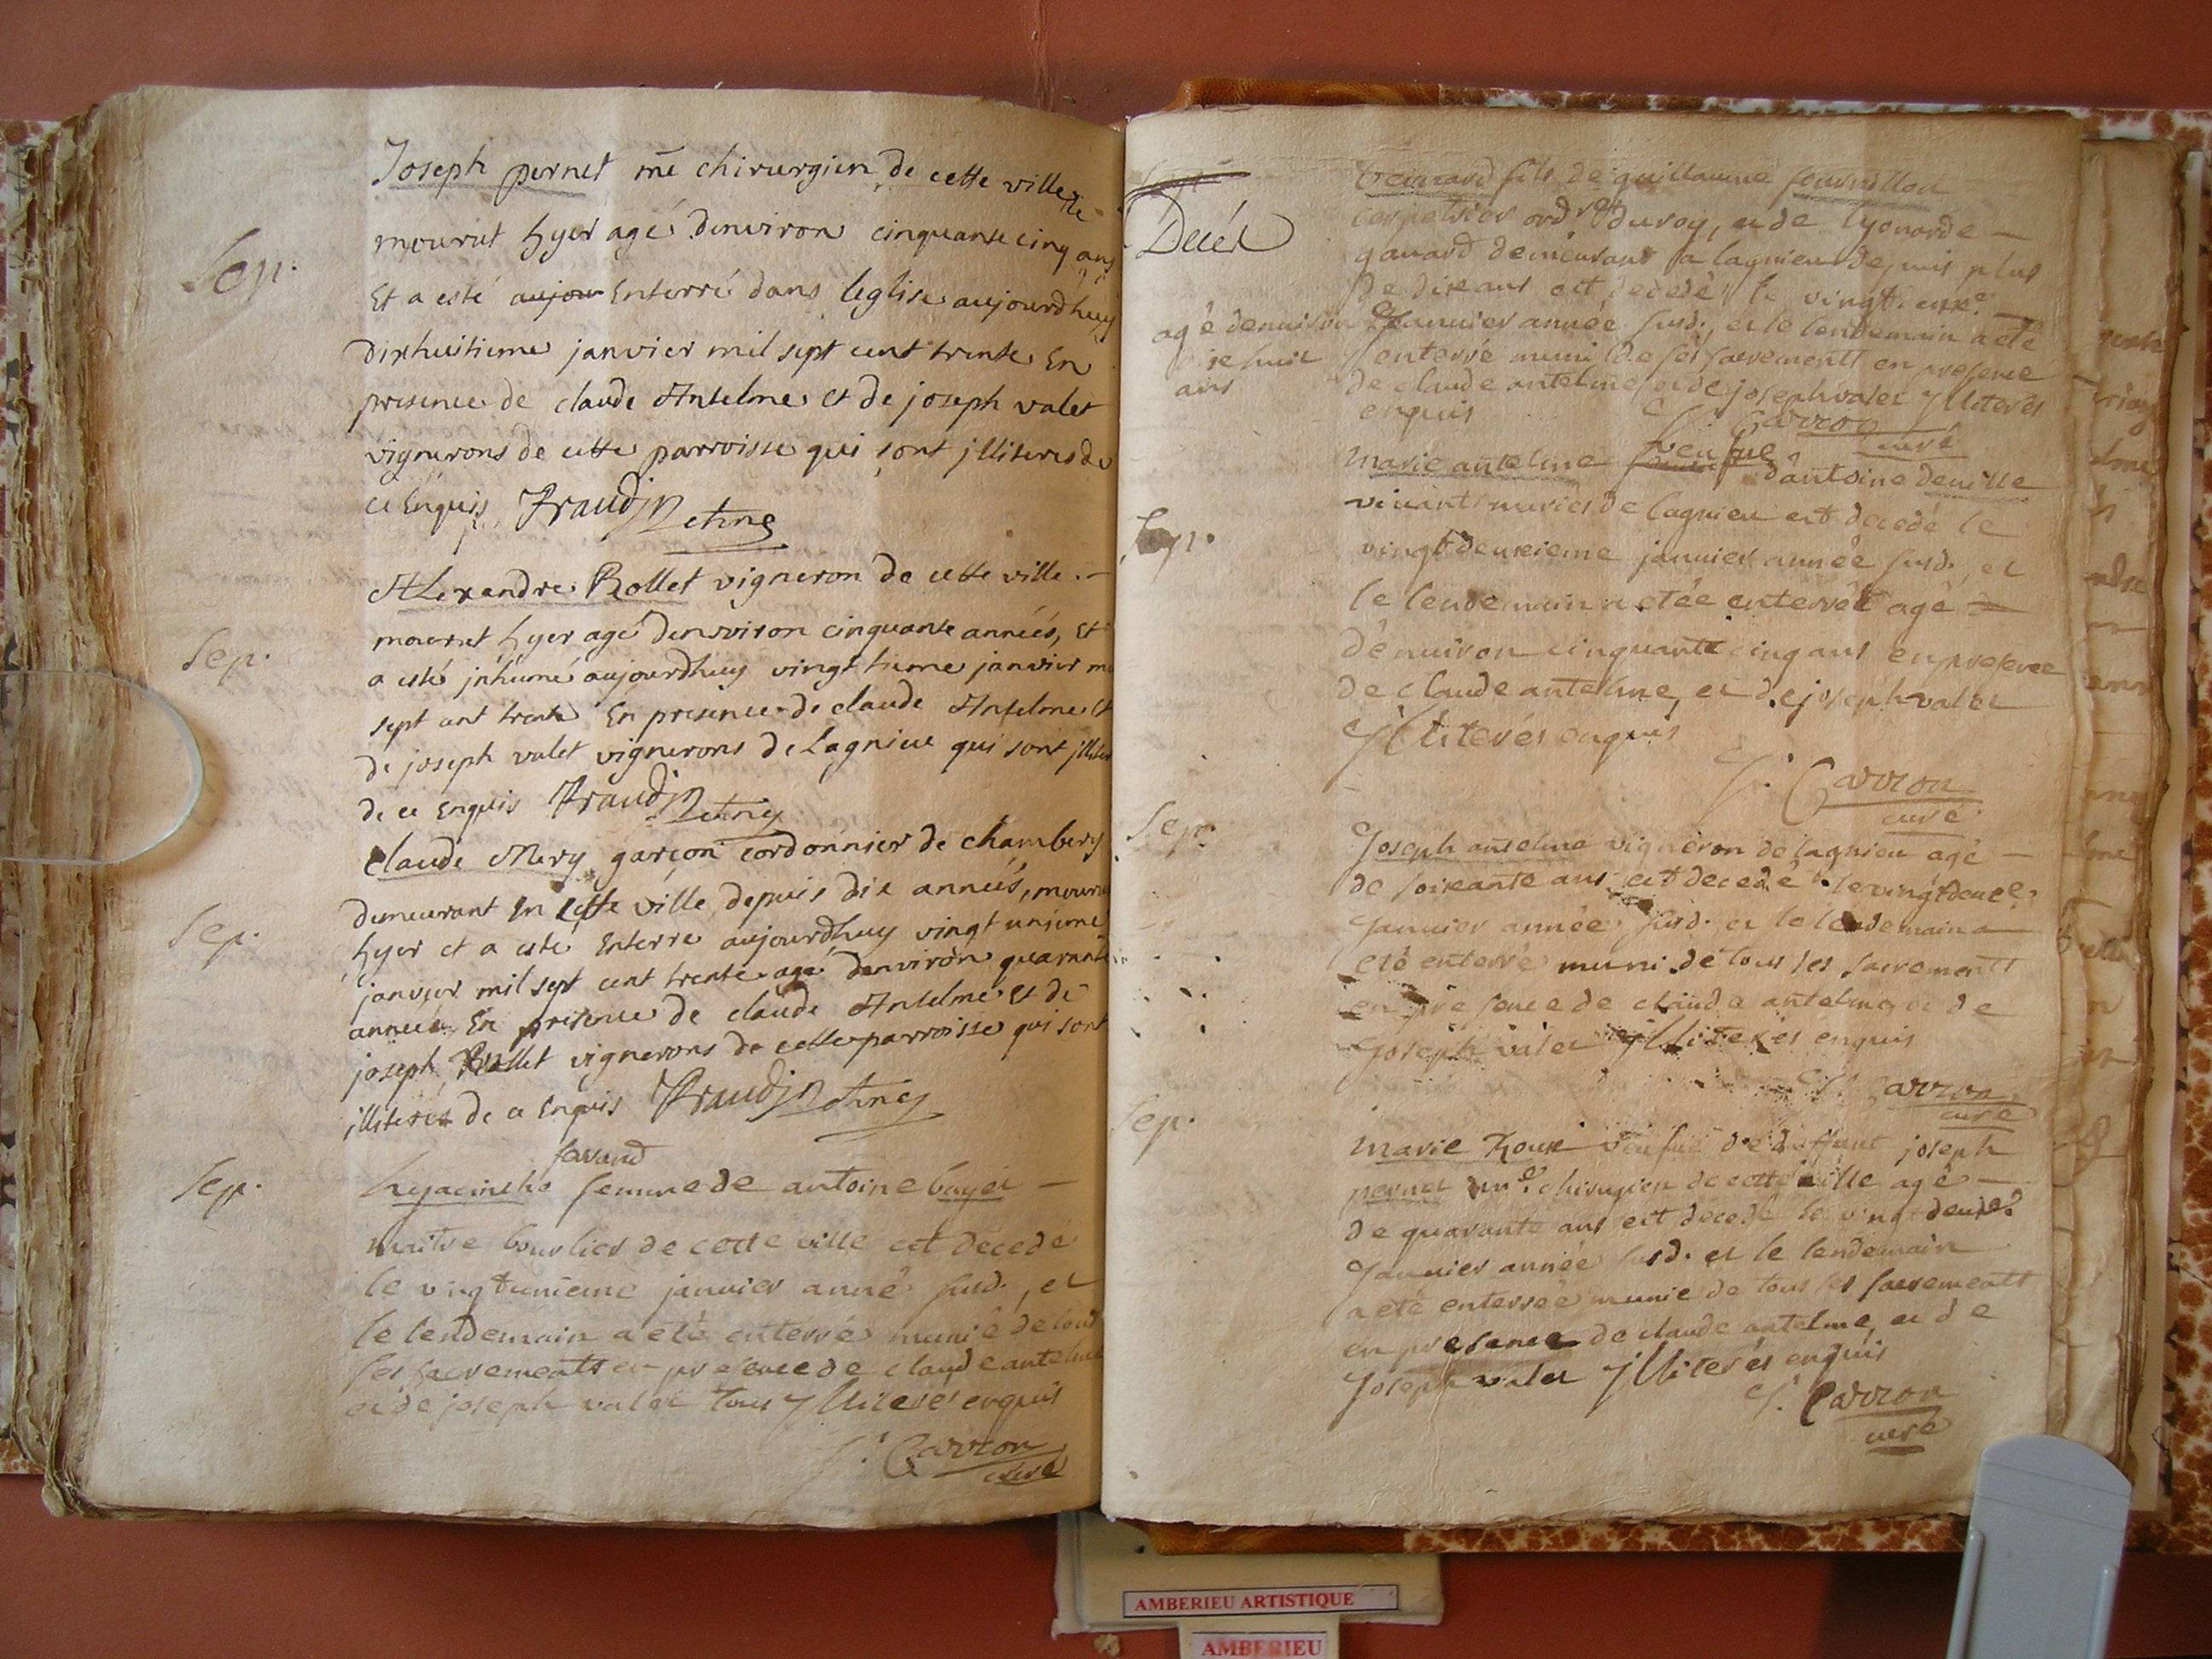 Joseph pernet mē chirurgien de cette ville
mourut hyer agé denviron cinquante cinq ans
Sep.
Et a esté aujour Enterré dans leglise aujourdhuy
dixhuitieme janvier mil sept cent trente En
presence de claude Antelme et de joseph valet
vignerons de cette parroisse qui sont jlliteres de
ce Enquis
Alexandre Rollet vigneron de cette ville
Sep.
mourut hyer agé denviron cinquante années, Et
a esté jnhumé aujourdhuy vingtieme janvier
sept cent trente En presence de claude Antelme Et
de joseph valet vignerons de Lagnieu qui sont
de ce Enquis
claude Mery garçon cordonnier de chambery
demeurant En cette ville depuis dix années,
Sep.
hyer et a esté Enterré aujourdhuy vingt unieme
janvier mil sept cent trente agé denviron quarante
années En presence de claude Antelme et de
joseph vallet vignerons de cette parroisse qui sont
jlliteres de ce Enquis
favand
Sep.
hyacinthe femme de antoine bayet
maitre bourlier de cette ville est décedé
le vingtunieme janvier anné susd., et
le lendemain a eté enterré munie de tous
ses sacrements en presence de claude antelme
et de joseph valet tous yllitere enquis
Carron
curé
fils de guillaume fournillon
Decés
ord duroy, et de lyonarde
gavard demeurant a lagnieu depuis plus
de dix ans est decedé le vingt
agé denviron
janvier année susd., et le lendemain a eté
huit
ans
enterré muni de ses sacrements en presence
de claude antelme et de joseph valet yllterés
enquis
Carron
curé
marie antelme veufue dantoine deville
vivant de lagnieu est decedé le
Sep.
vingtdeuxieme janvier année susd. et
le lendemain a etée enterrée agé
denuiron cinquante cinq ans en presence
de claude antelme, et de joseph valet
yllterés enquis
Carron
curé
Sep.
Joseph antelme vigneron de lagnieu agé
de soixante ans est decedé le vingtdeuxe
Januier année susd. et le lendemain a
eté enterré muni de tous ses sacrements
en presence de claude antelme et de
Joseph valet ylliterés enquis
Carron
curé
Sep.
marie Roux veufue de deffunt joseph
pernet me chirugien de cette ville agé
de quarante ans est decedé le vingtdeuxe
Januier année susd. et le lendemain
a eté enterrée munie de tous ses sacrements
en presance de claude antelme, et de
Joseph valet ylliterés enquis
Carron
curé
AMBERIEU ARTISTIQUE
AMBERIEU